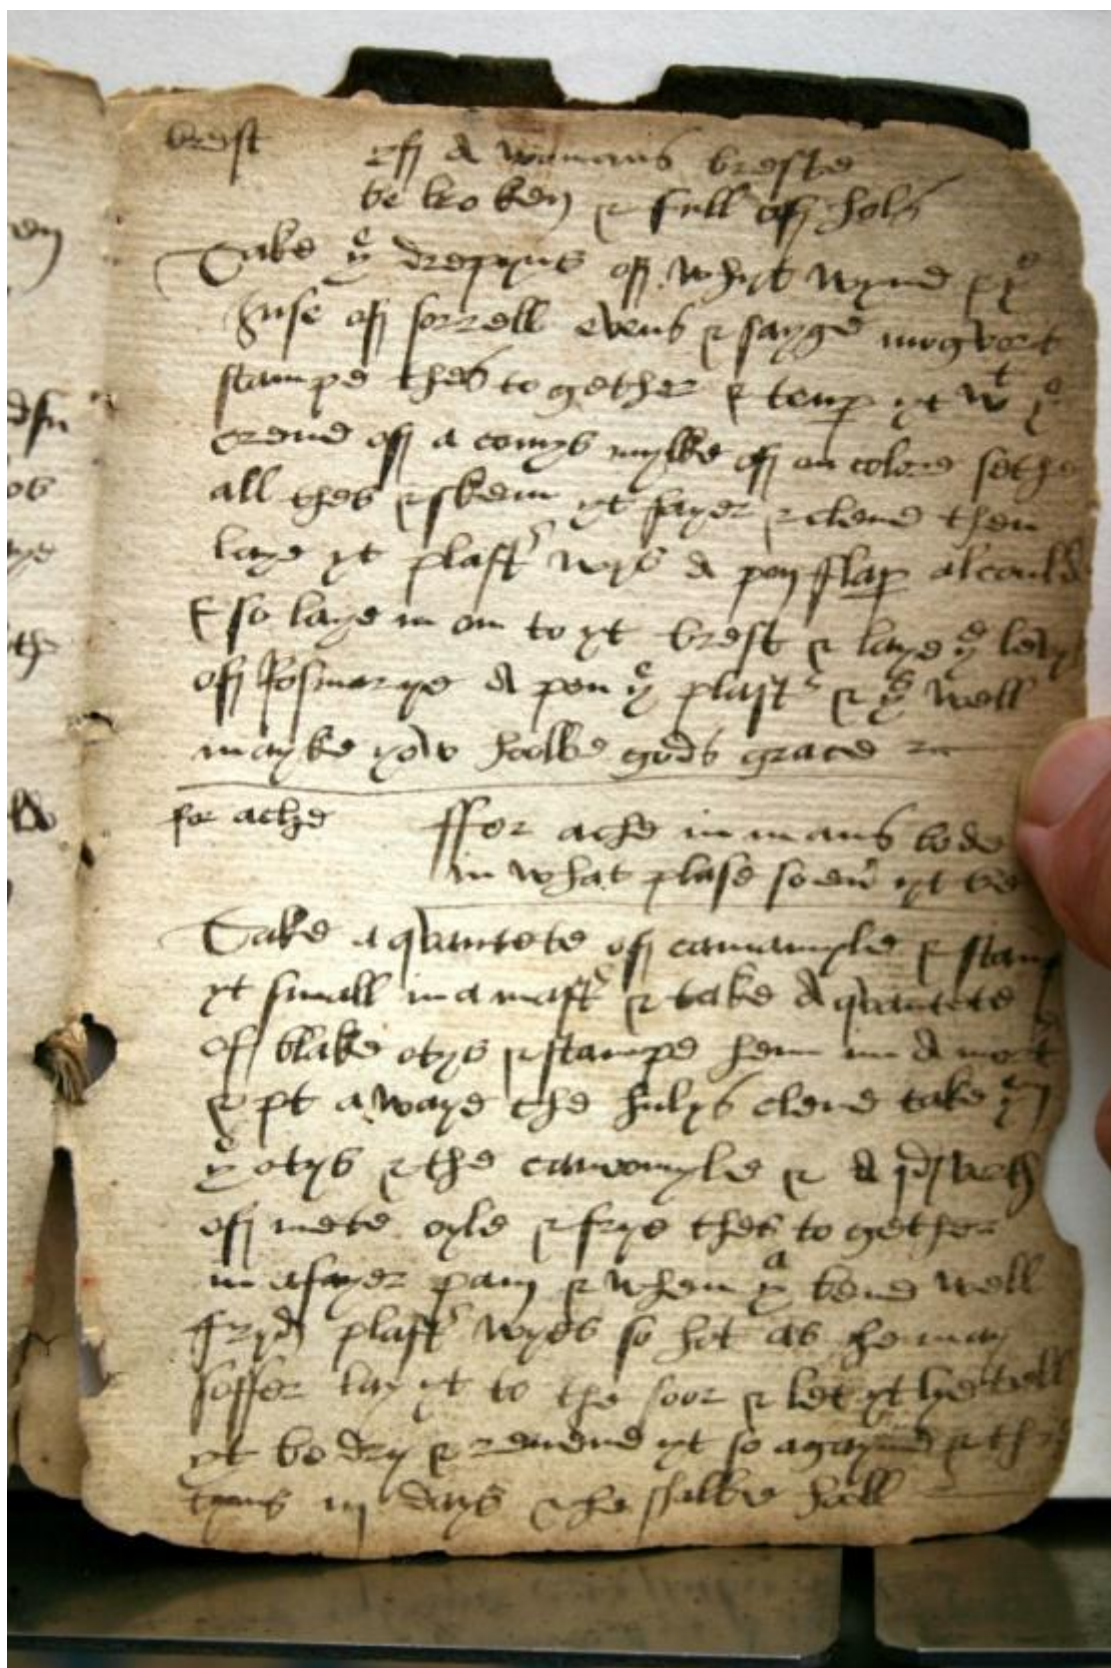 brest
yff A womans breste
be broken & full off hols
Take ye dregyns off whyt wynd & ye
Juse off sorrell evens & sayge mogvort
stampe thes to gether & temp yt wt ye
creme off a cowys mylke off on colore sethe
all thes & skem yt fayer & clene then
laye yt plastr wys A pon flap al could
& so laye in on to yt brest & laye ye levys
off Rosmarye A pon ye plastr & ys well
mayke yow hoolle gods grace
for ache
ffor ache in mans bode
in what plase soeuer yt be
Take a qvantete off camamyle & stamp
yt small in a mastr & take A qvantete
off blake otys & stampe hem in A mort
& pt awaye the hulys clene take then
ye otys & the camomyle & A
off nete oyle & frye thes to gether
in a fayer pan & when ya bene well
fryd plastr wyes so hot as he may
soffer lay yt to the soor & let yt lye tell
yt be dry & renewe yt so agayne & thre
tyms iij days & he shalbe holl